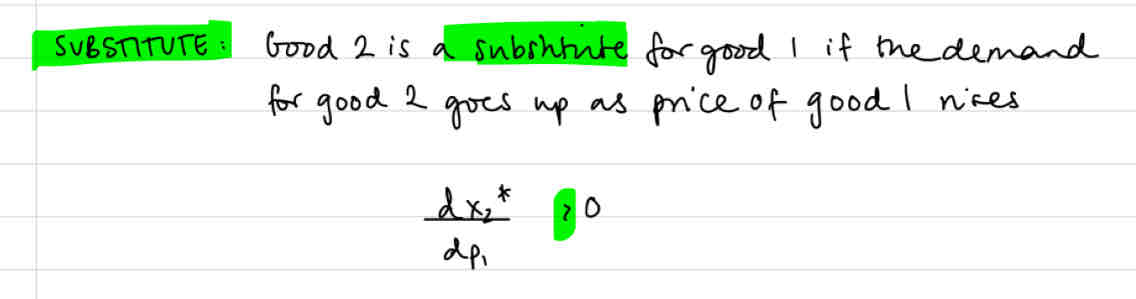 SUBSTITUTE: Good 2 is a substitute for good 1 if the demand
for good 2 goes up as price of good 1 rises
dx₂* > 0
dp₁